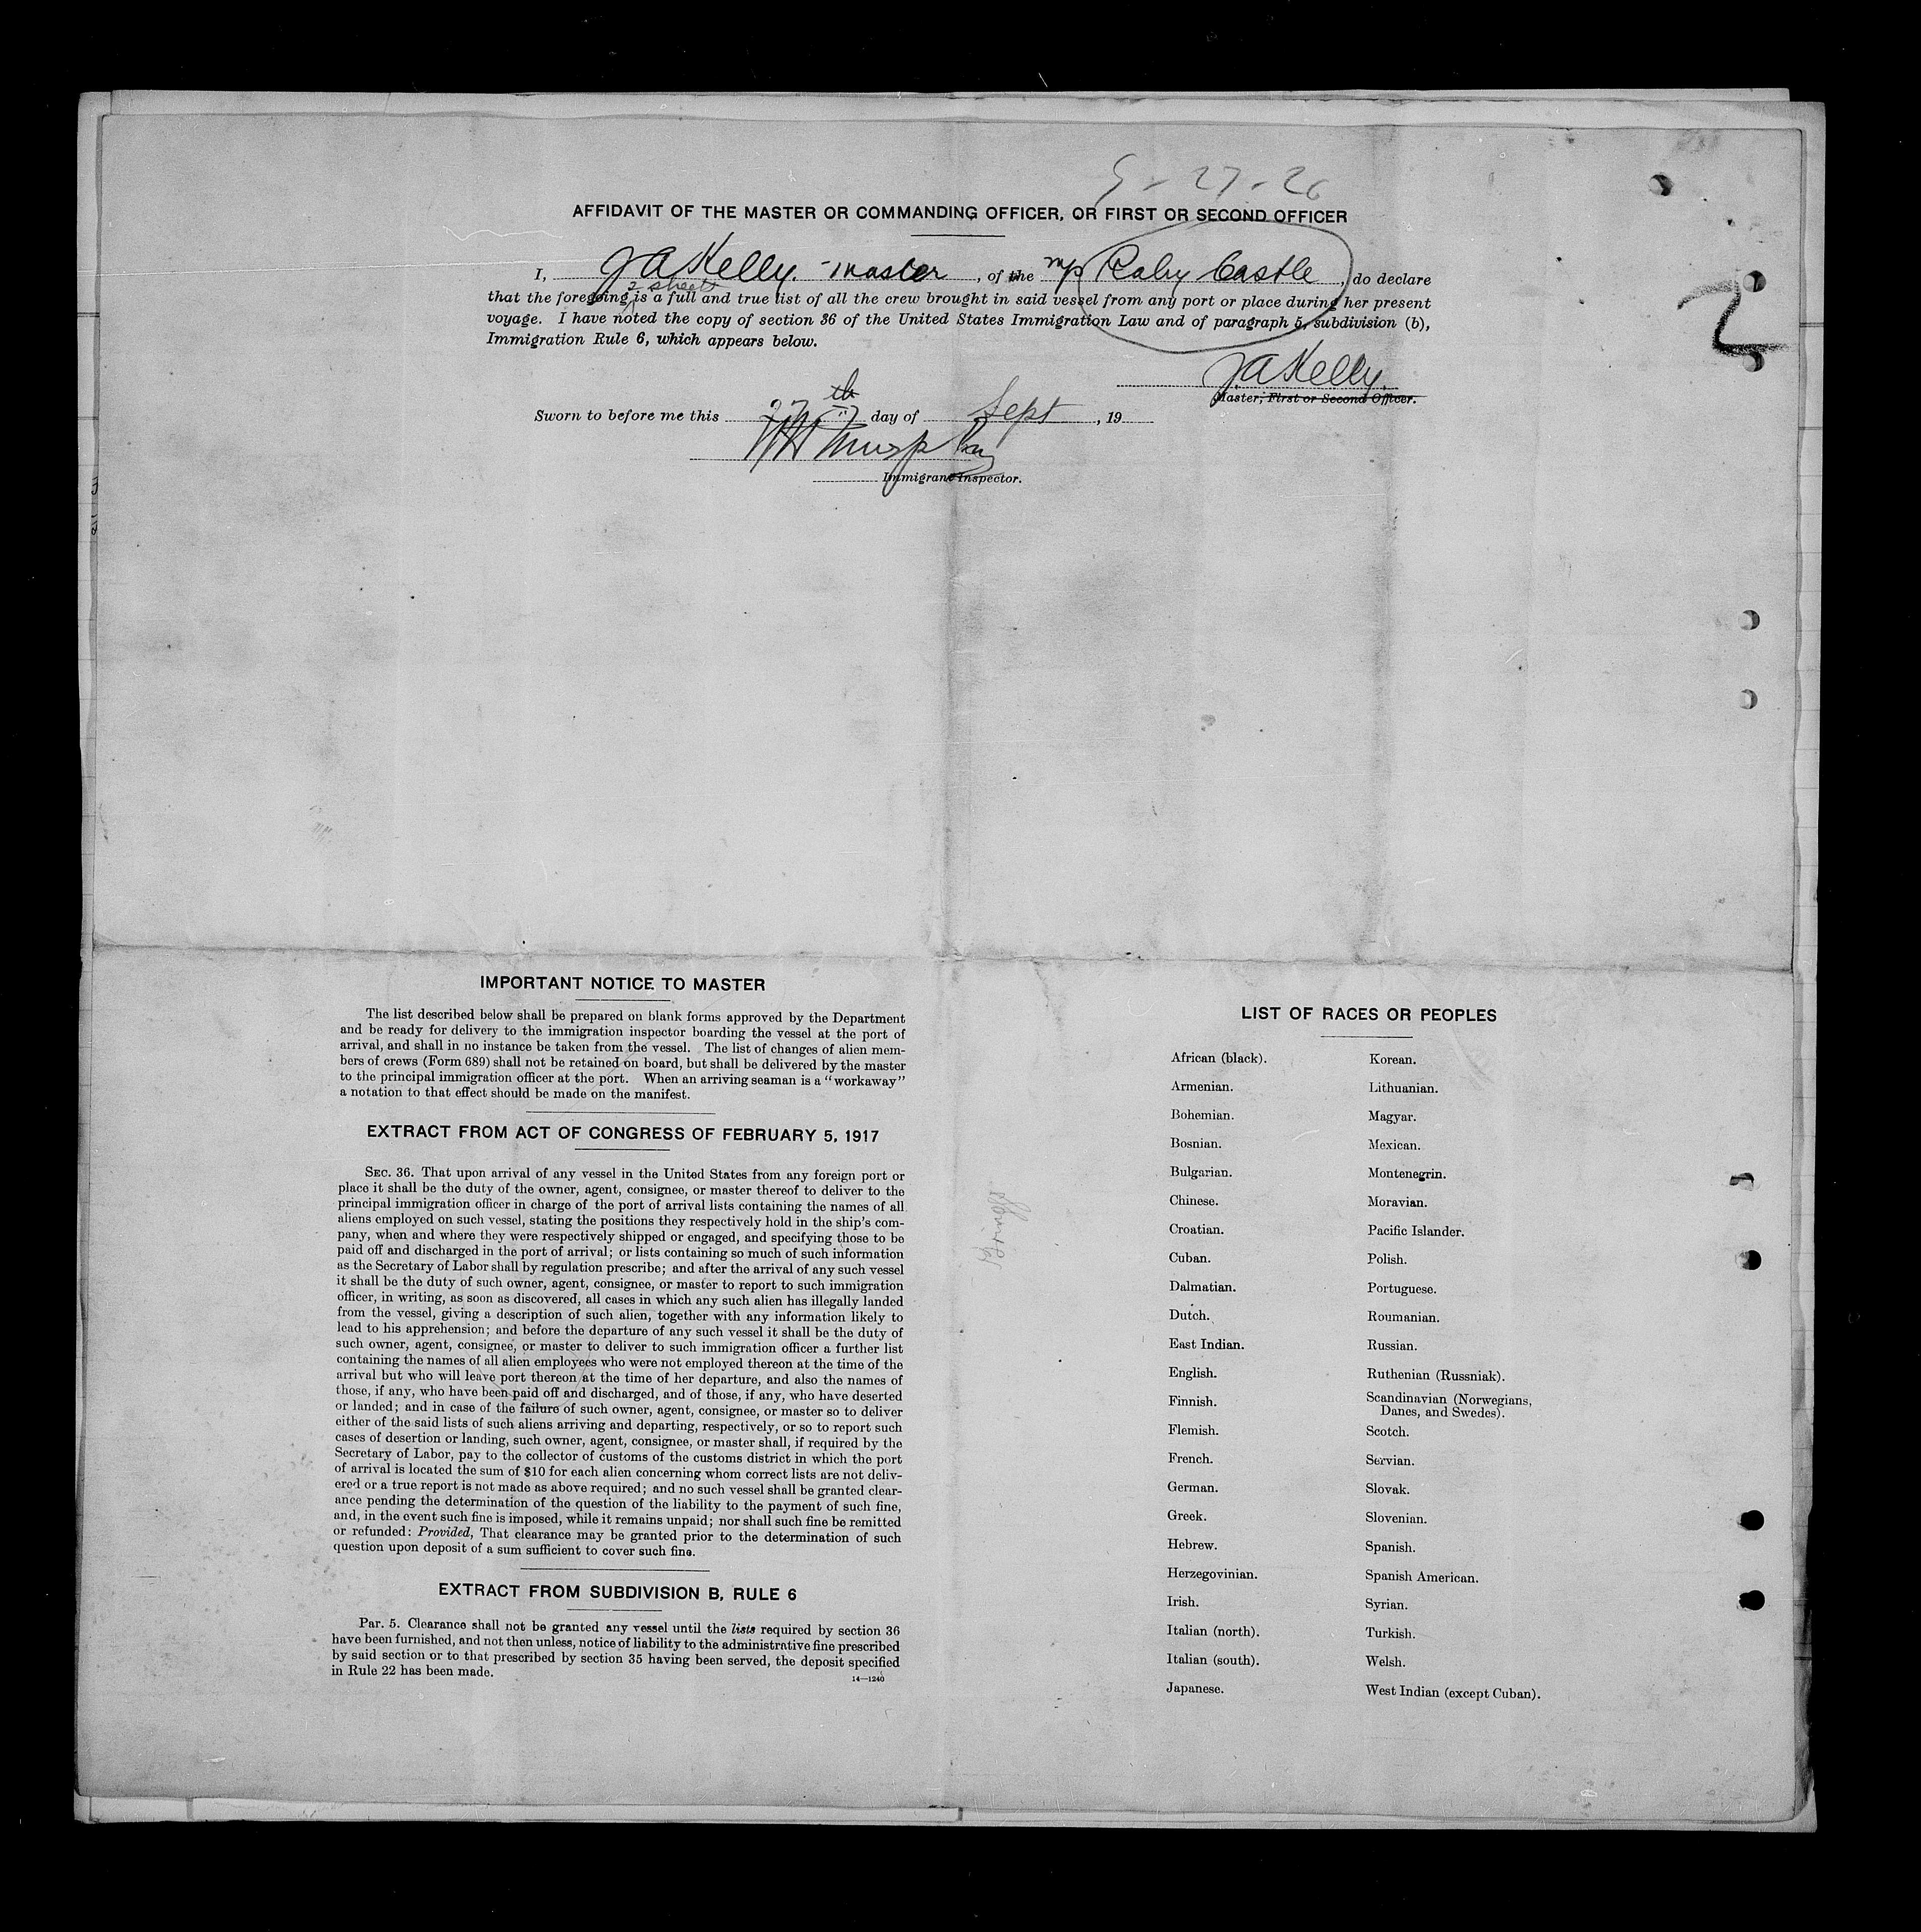 9-27-26
AFFIDAVIT OF THE MASTER OR COMMANDING OFFICER, OR FIRST OR SECOND OFFICER
I, J A Kelly. - master, of the Raby Castle, do declare
2 sheets
that the foregoing is a full and true list of all the crew brought in said vessel from any port or place during her present
voyage. I have noted the copy of section 36 of the United States Immigration Law and of paragraph 5, subdivision (b),
Immigration Rule 6, which appears below.
2
J.A Kelly.
Master, First or Second Officer.
Sworn to before me this 27th day of Sept, 19
Murphy
Immigrant Inspector.
IMPORTANT NOTICE TO MASTER
The list described below shall be prepared on blank forms approved by the Department
and be ready for delivery to the immigration inspector boarding the vessel at the port of
arrival, and shall in no instance be taken from the vessel. The list of changes of alien mem-
bers of crews (Form 689) shall not be retained on board, but shall be delivered by the master
to the principal immigration officer at the port. When an arriving seaman is a "workaway"
a notation to that effect should be made on the manifest.
EXTRACT FROM ACT OF CONGRESS OF FEBRUARY 5, 1917
SEC. 36. That upon arrival of any vessel in the United States from any foreign port or
place it shall be the duty of the owner, agent, consignee, or master thereof to deliver to the
principal immigration officer in charge of the port of arrival lists containing the names of all
aliens employed on such vessel, stating the positions they respectively hold in the ship's com-
pany, when and where they were respectively shipped or engaged, and specifying those to be
paid off and discharged in the port of arrival; or lists containing so much of such information
as the Secretary of Labor shall by regulation prescribe; and after the arrival of any such vessel
it shall be the duty of such owner, agent, consignee, or master to report to such immigration
officer, in writing, as soon as discovered, all cases in which any such alien has illegally landed
from the vessel, giving a description of such alien, together with any information likely to
lead to his apprehension; and before the departure of any such vessel it shall be the duty of
such owner, agent, consignee, or master to deliver to such immigration officer a further list
containing the names of all alien employees who were not employed thereon at the time of the
arrival but who will leave port thereon at the time of her departure, and also the names of
those, if any, who have been paid off and discharged, and of those, if any, who have deserted
or landed; and in case of the failure of such owner, agent, consignee, or master so to deliver
either of the said lists of such aliens arriving and departing, respectively, or so to report such
cases of desertion or landing, such owner, agent, consignee, or master shall, if required by the
Secretary of Labor, pay to the collector of customs of the customs district in which the port
of arrival is located the sum of $10 for each alien concerning whom correct lists are not deliv-
ered or a true report is not made as above required; and no such vessel shall be granted clear-
ance pending the determination of the question of the liability to the payment of such fine,
and, in the event such fine is imposed, while it remains unpaid; nor shall such fine be remitted
or refunded: Provided, That clearance may be granted prior to the determination of such
question upon deposit of a sum sufficient to cover such fine.
EXTRACT FROM SUBDIVISION B, RULE 6
Par. 5. Clearance shall not be granted any vessel until the lists required by section 36
have been furnished, and not then unless, notice of liability to the administrative fine prescribed
by said section or to that prescribed by section 35 having been served, the deposit specified
in Rule 22 has been made.
14—1240
LIST OF RACES OR PEOPLES
African (black). Korean.
Armenian. Lithuanian.
Bohemian. Magyar.
Bosnian. Mexican.
Bulgarian. Montenegrin.
Chinese. Moravian.
Croatian. Pacific Islander.
Cuban. Polish.
Dalmatian. Portuguese.
Dutch. Roumanian.
East Indian. Russian.
English. Ruthenian (Russniak).
Finnish. Scandinavian (Norwegians,
Danes, and Swedes).
Flemish. Scotch.
French. Servian.
German. Slovak.
Greek. Slovenian.
Hebrew. Spanish.
Herzegovinian. Spanish American.
Irish. Syrian.
Italian (north). Turkish.
Italian (south). Welsh.
Japanese. West Indian (except Cuban).